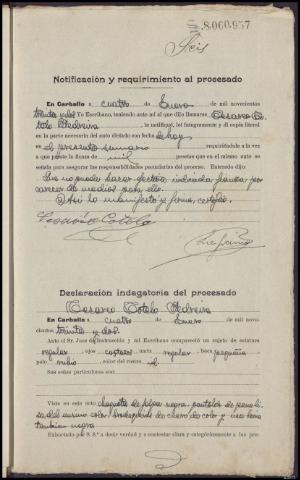 8.060.957
Seis
Notificación y requirimiento al procesado
En Carballo a cuatro de Enero de mil novecientos
treinta y dos Yo Escribano, teniendo ante mí al que dijo llamarse, Cesareo Co-
telo Pedreira le notifiqué, leí íntegramente y dí copia literal
en la parte necesaria del auto dictado con fecha de hoy
en el presente sumario requiriéndole a la vez
a que preste la fianza de mil pesetas que en el mismo auto se
señala para asegurar las responsabilidades pecuniarias del proceso. Enterado dijo:
Que no puede hacer efectiva indicada fianza por
carecer de medios para ello.
Así lo manifestó y firma, certifico.
Cesareo Cotelo
Declaración indagatoria del procesado
Cesareo Cotelo Pedreira
En Carballo a cuatro de Enero de mil nove-
cientos treinta y dos.
Ante el Sr. Juez de Instrucción y mi Escribano compareció un sujeto de estatura
regular, ojos castaños nariz regular boca pequeña
pelo rubio color del rostro id.
Sus señas particulares son
Viste en este acto chaqueta de pana negra, pantalon de pana li-
sa del mismo color, de color y una boina
tambien negra
Exhortado por S. S.ª a decir verdad y a contestar clara y categóricamente a las pre-